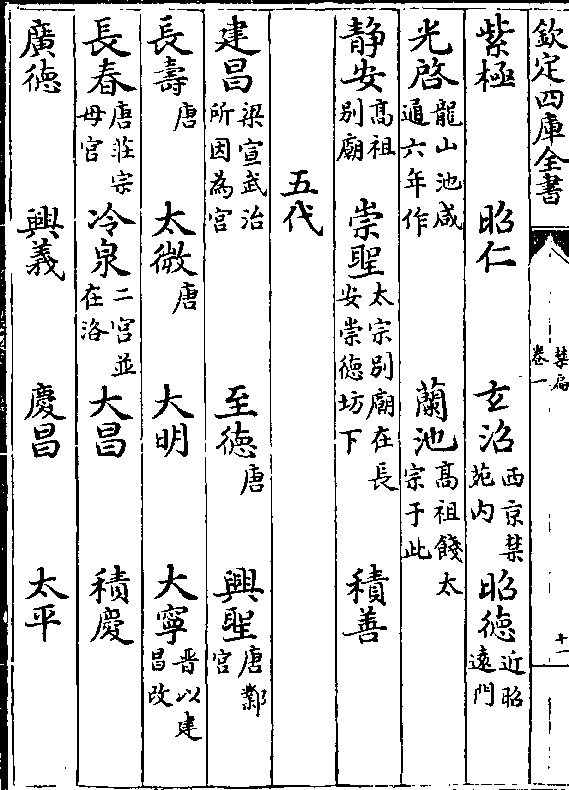 欽定四庫全書
禁扁
卷一
十一
紫極 昭仁 玄沼 西京禁苑内 昭德 近昭遠門
光啓 龍山池咸通六年作 蘭池 高祖餞太宗于此
静安 高祖别廟 崇聖 太宗别廟在長安崇德坊下 積善
五代
建昌 梁宣武治所因為宮 至德 唐 興聖 唐鄴宮
長壽 唐 太微 唐 大明 大寧 晋以建昌改
長春 唐莊宗母宮 冷泉 二宮並在洛 大昌 積慶
廣德 興義 慶昌 太平